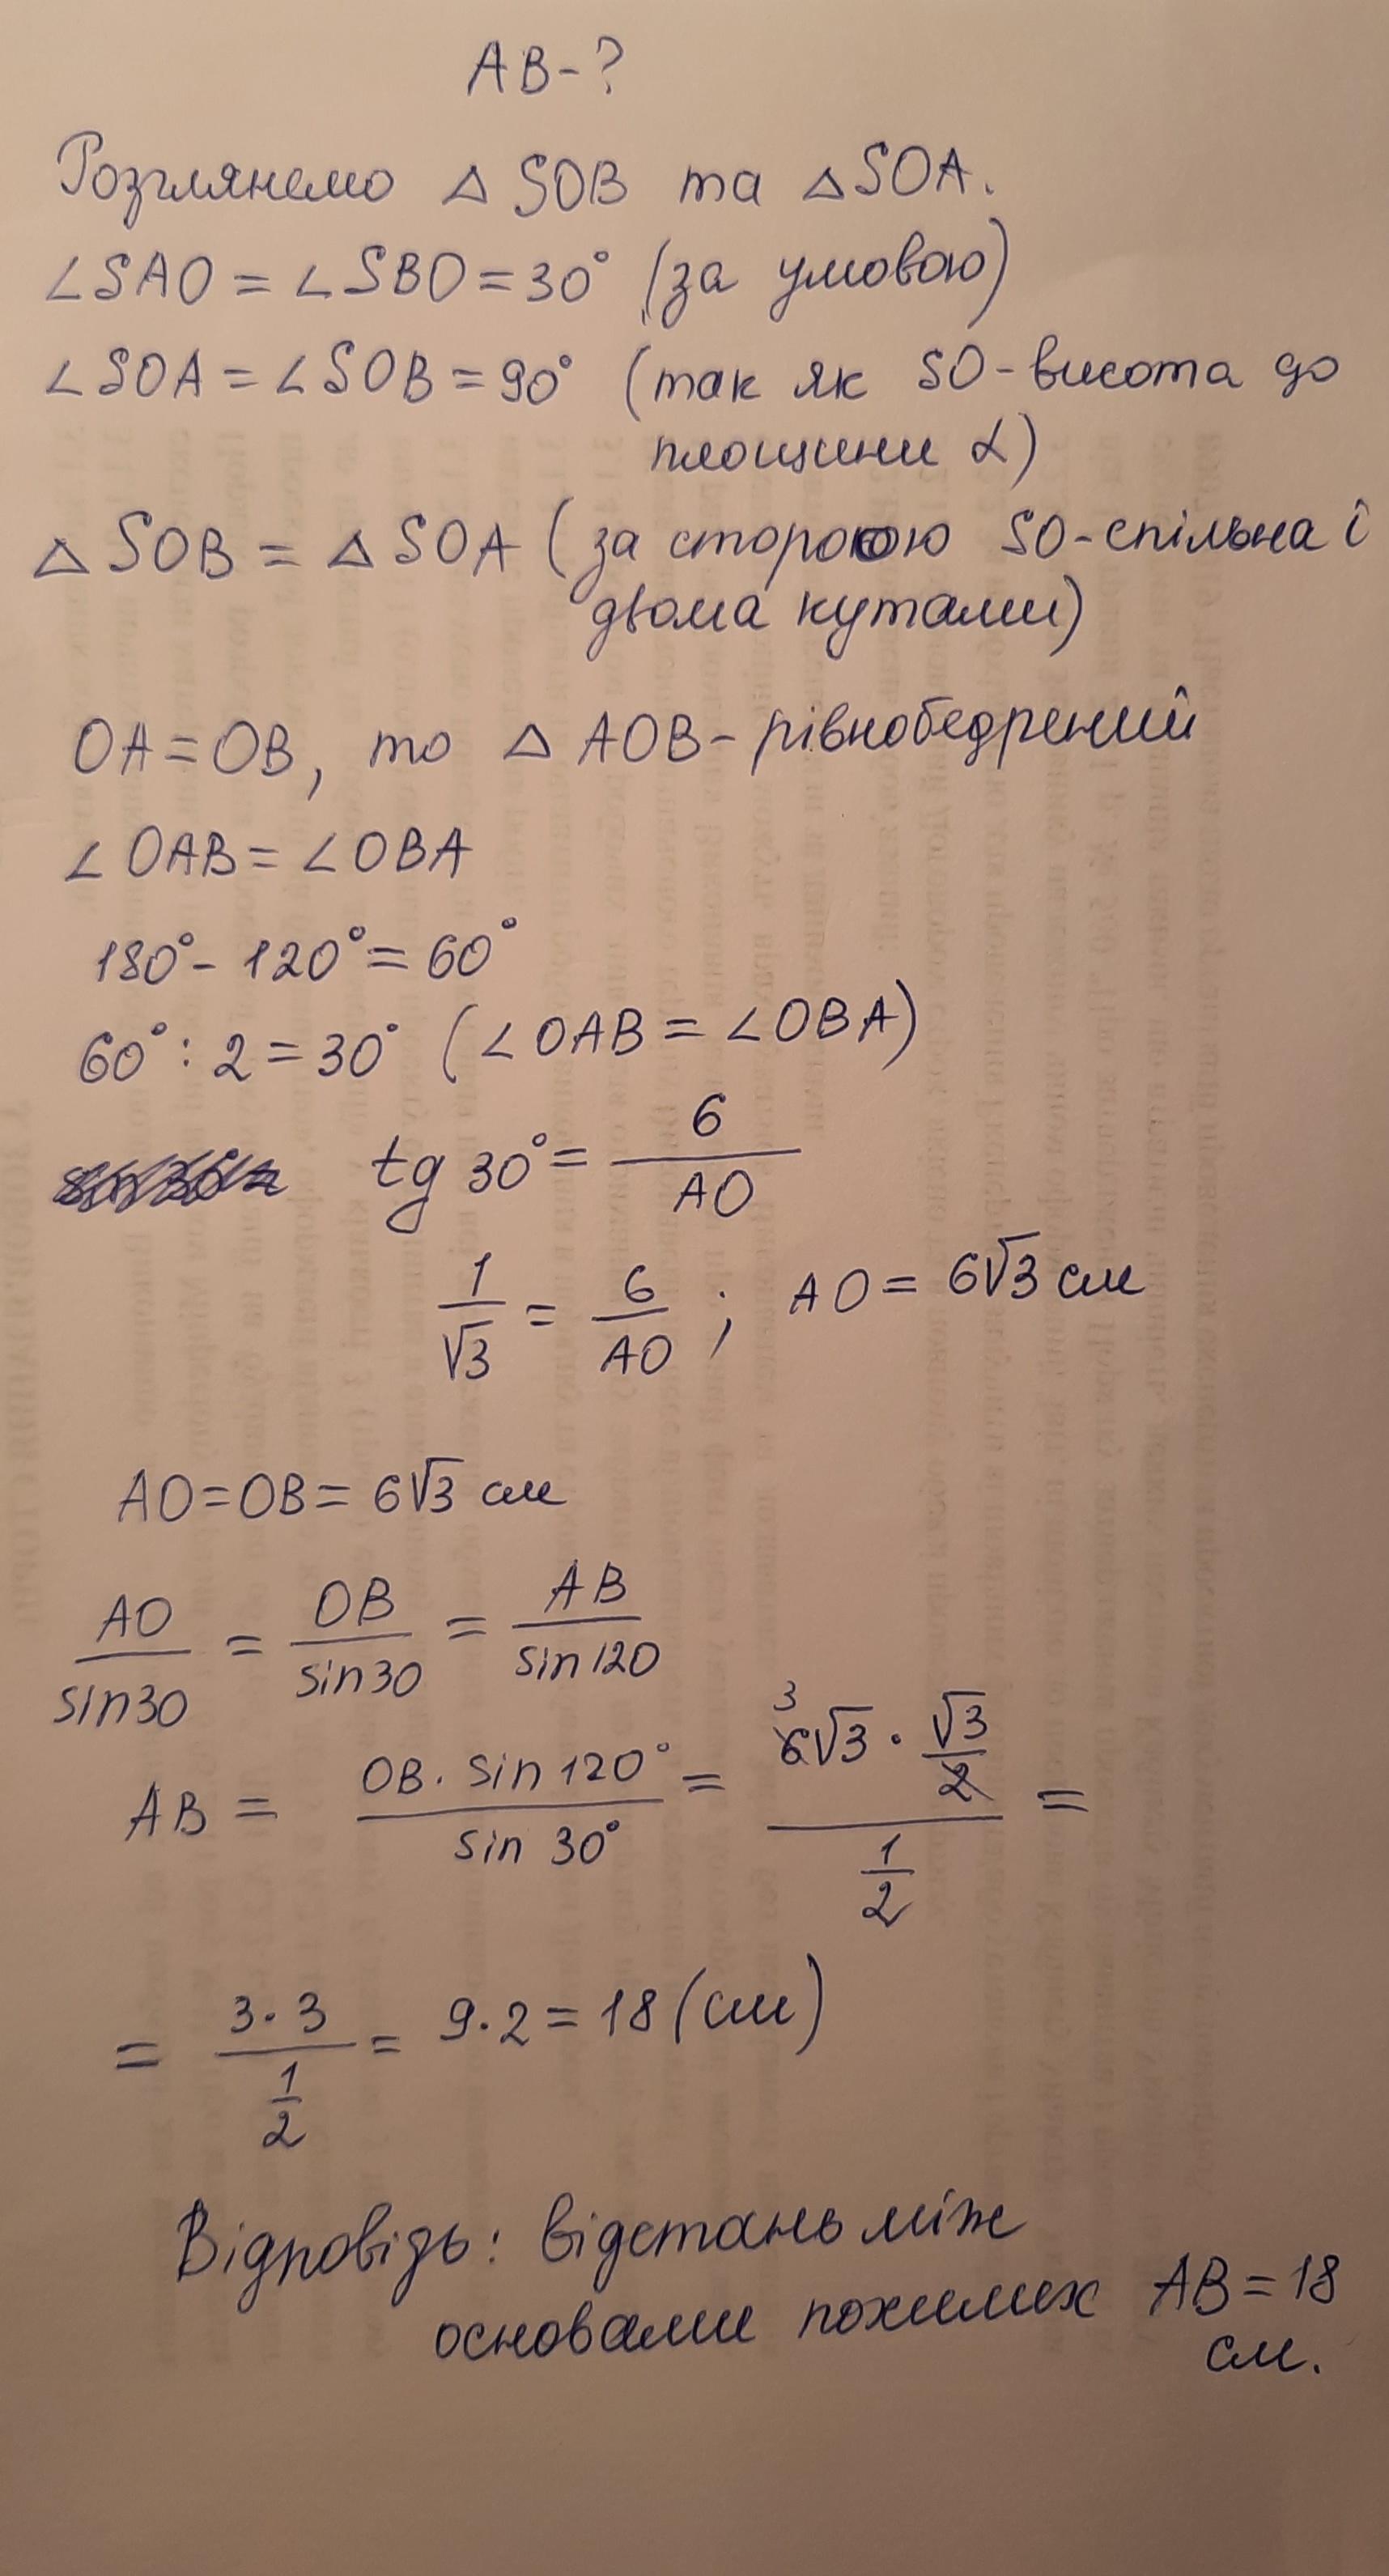 AB-?
Розглянемо △ SOB та △SOA.
∠SAO = ∠SBO = 30° (за умовою)
∠SOA = ∠SOB = 90° (так як SO-висота до
площини α)
△ SOB = △ SOA (за стороною SO-спільна і
двома кутами)
OA=OB, то △ AOB - рівнобедрений
∠OAB = ∠OBA
180° - 120° = 60°
60° : 2 = 30° (∠OAB = ∠OBA)
tg 30° = 6/AO
1/√3 = 6/AO ; AO = 6√3 см
AO=OB= 6√3 см
AO/sin30 = OB/sin30 = AB/sin120
AB = OB · sin 120°/sin 30° = 3 6√3 · √3/2 / 1/2 =
= 3·3 / 1/2 = 9·2 = 18 (см)
Відповідь: відстань між
основами похилих AB = 18
см.